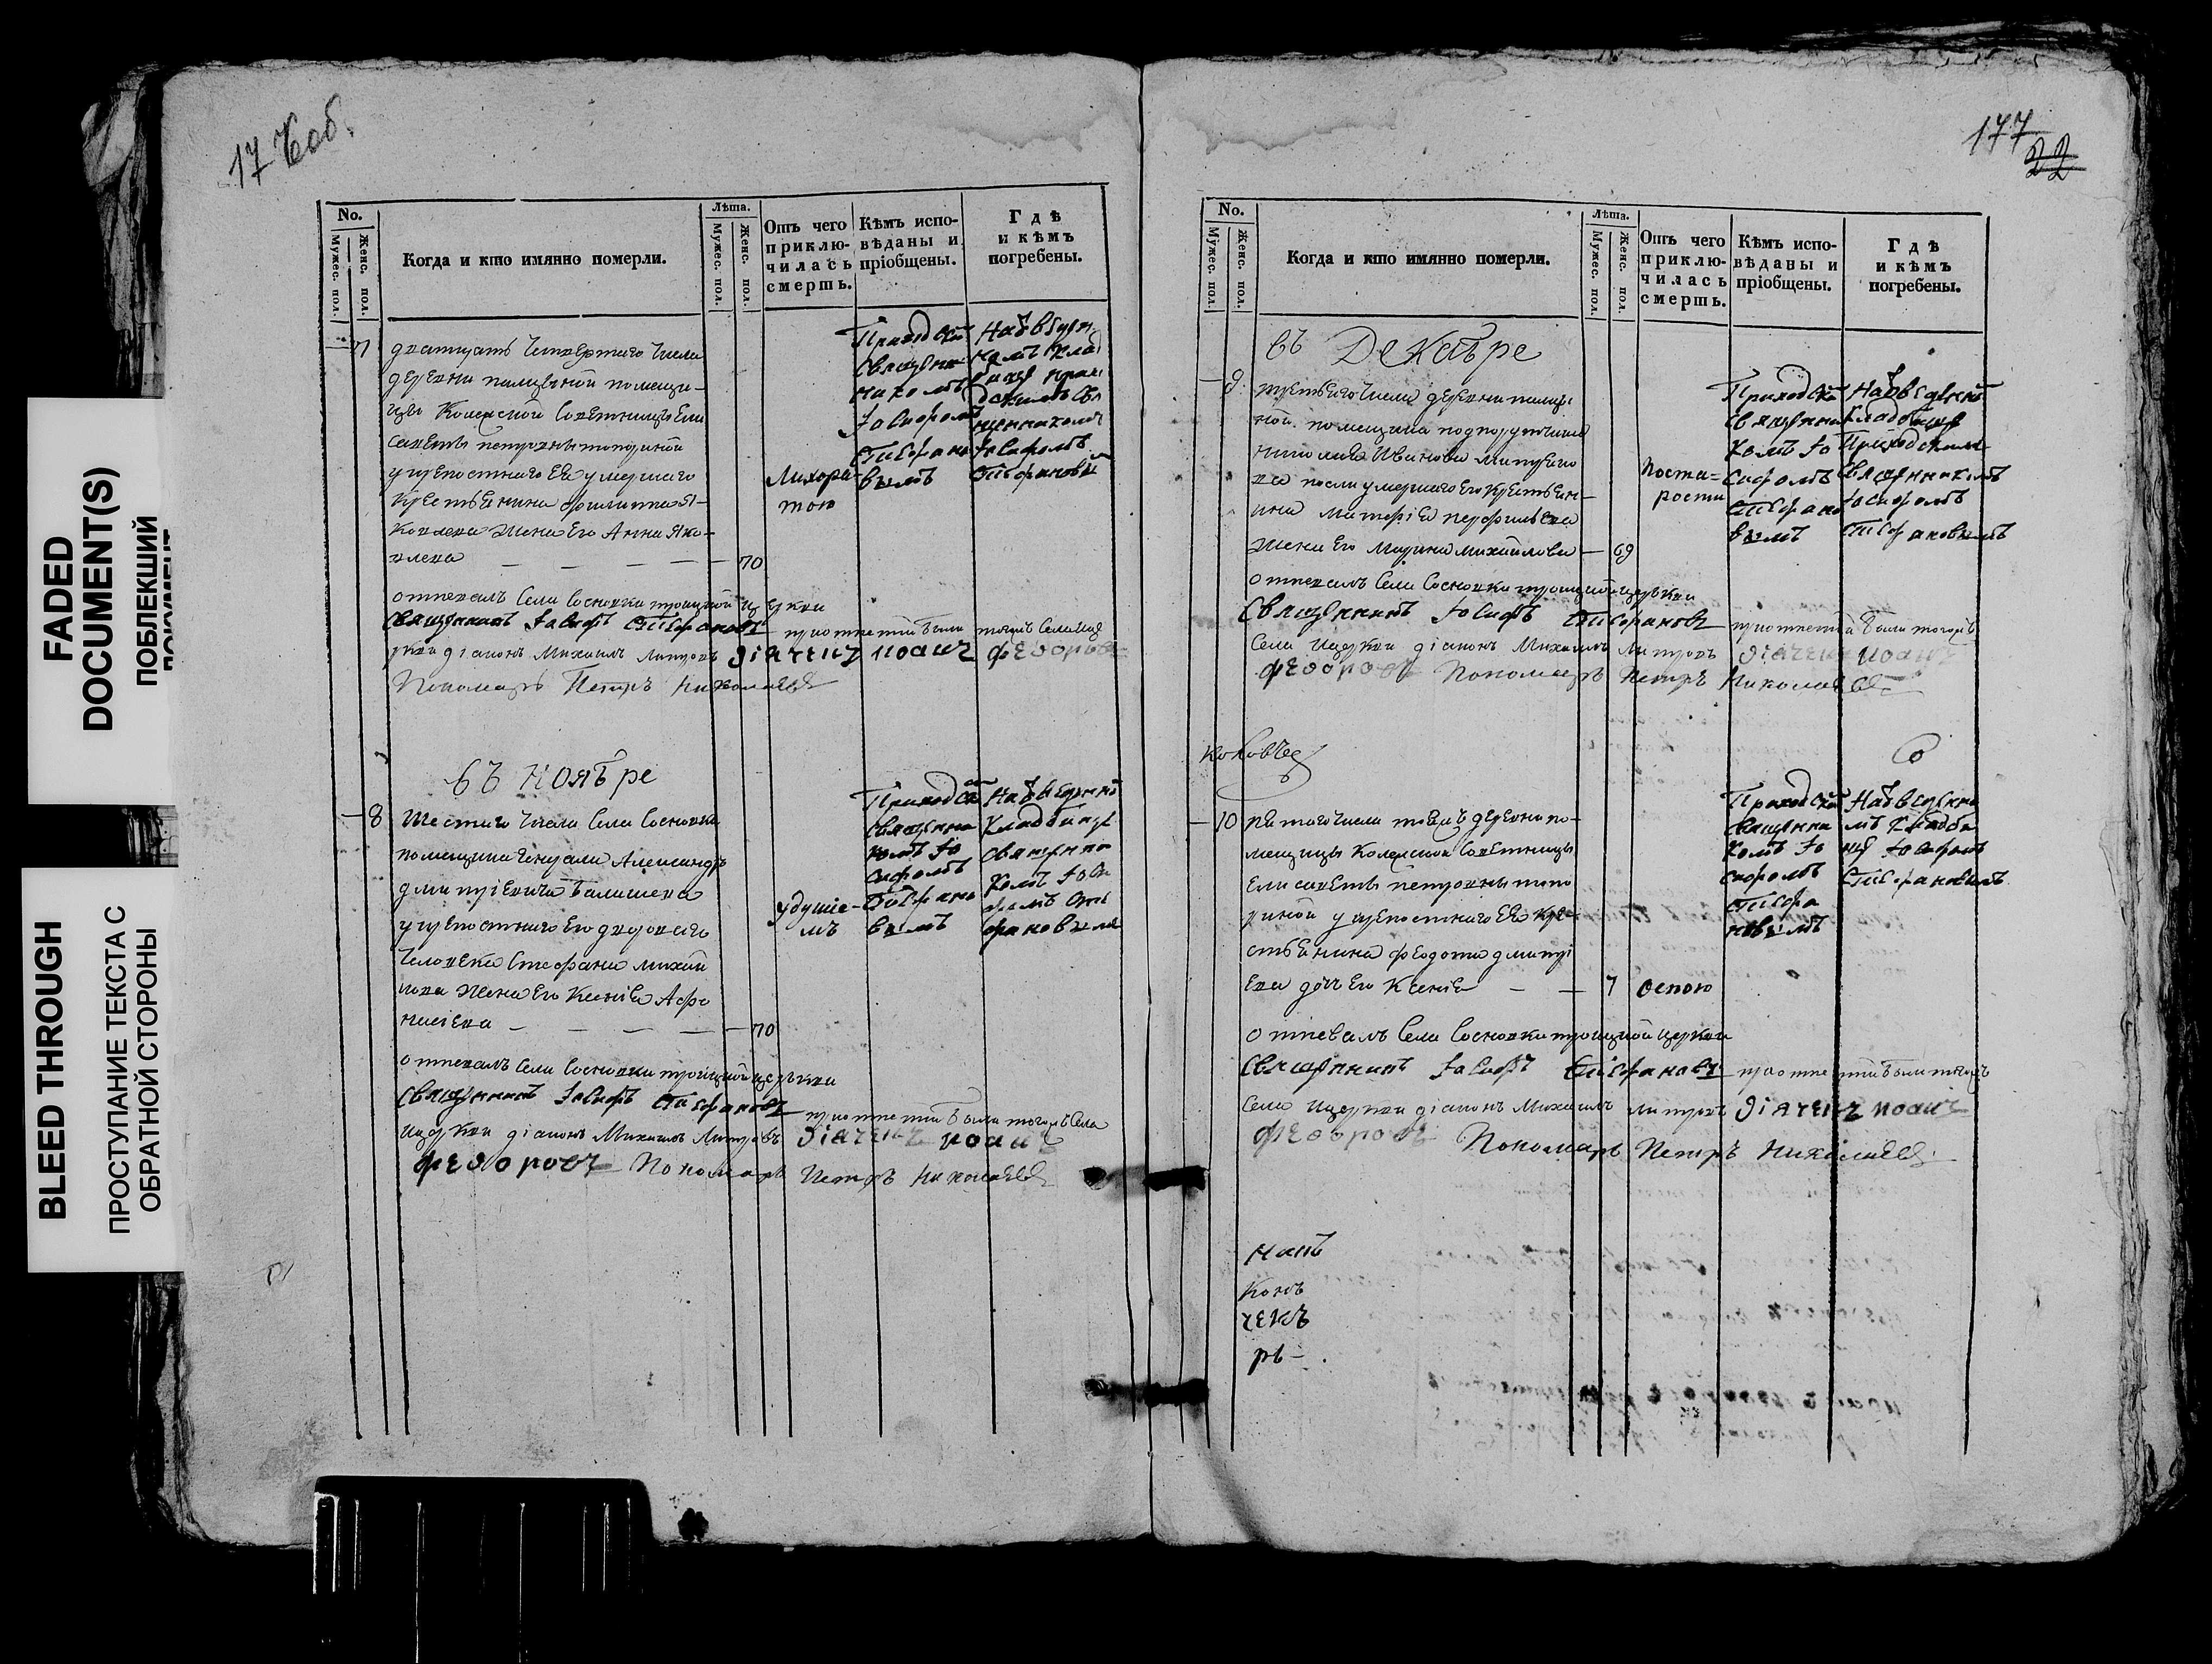 FADED
DOCUMENT(S)
ПОБЛЕКШИЙ
ДОКУМЕНТ
BLEED THROUGH
ПРОСТУПАНИЕ ТЕКСТА С
ОБРАТНОЙ СТОРОНЫ
176 об.
No.
Мужес. пол.
Женс. пол.
Когда и кто имянно померли.
Лѣта.
Мужес. пол.
Женс. пол.
Отъ чего приклю-
чилась смерть.
Кѣмъ испо-
вѣданы и
пріобщены.
Гдѣ
и кѣмъ
погребены.
7 дватцать четвертаго числа
деревни помещи-
цы Колежской Советницы Ели
саветы петровны топориной
у крепостнаго Ея умершаго
крестьянина филиппа Я-
ковлева жена Его Анна Яко-
влева — — — — 70
Лихора-
тою
Приходски
священи-
комъ
Іосифомъ
Стефано
вымъ
отпевалъ Села Сосновки троицкой церкви
священникъ Іосифъ Стефановъ при отпетии были тогожъ Села и це
ркви діаконъ Михаилъ Дьячекъ Иоаннъ Федоровъ
Пономарь Петръ Николаевъ
въ Ноябре
8 Шестаго числа Села Сосновки
помещика Генерала Александра
дмитріевича Балашева
у крепостнаго Его двороваго
человека Стефана михай
лова жена Его Ксенія Афа
насіева — — — — 70
удушие-
мъ
Приходски
священни
комъ Іо
сифомъ
Стефано
вымъ
На отведенно
кладбище
священни
комъ Іоси
фомъ Сте
фановымъ
отпевалъ Села Сосновки троицкой церкви
Священникъ Іосифъ Стефановъ при отпетии были тогожъ Села
и церкви діаконъ Михаилъ Дьячекъ Иоаннъ
Федоровъ Пономарь Петръ Николаевъ
177
22
No.
Мужес. пол.
Женс. пол.
Когда и кто имянно померли.
Лѣта.
Мужес. пол.
Женс. пол.
Отъ чего приклю-
чилась смерть.
Кѣмъ испо-
вѣданы и
пріобщены.
Гдѣ
и кѣмъ
погребены.
въ Декабре
9 третьяго числа деревни
помещика подпорутчика
Иванова
после умершаго Его крестьян-
ина Матфея перфильева
жена Его Марина михайлова — 69
По ста-
рости
Приходски
священни
комъ Іо
сифомъ
Стефано
вымъ
На отведенно
кладбище
Приходскимъ
священникомъ
Іосифомъ
Стефановымъ
отпевалъ Села Сосновки троицкой церкви
Священникъ Іосифъ Стефановъ при отпетии были тогожъ
Села и церкви діаконъ Михаилъ Дьячекъ Иоаннъ
Федоровъ Пономарь Петръ Николаевъ
10 пятаго числа деревни по-
мещицы Колежской Советницы
Елисаветы петровны топо
риной у крепостнаго Ея кре-
стьянина федота дмитрі
ева дочь Его Ксенія — — 7
оспою
Приходски
священни
комъ Іо
сифомъ
Стефа
новымъ
На отведенно
мъ кладби
ще Іосифомъ
Стефановымъ
отпевалъ Села Сосновки троицкой церкви
Священникъ Іосифъ Стефановъ при отпетии были тогожъ
Села и церкви діаконъ Михаилъ Дьячекъ Иоаннъ
Федоровъ Пономарь Петръ Николаевъ